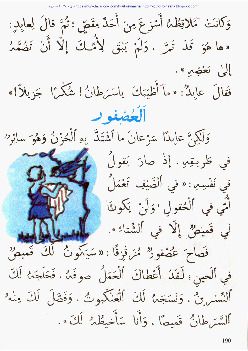 وَكَانَتْ مَلَاقِطُهُ أَسْرَعَ مِنْ أَحَدِّ مِقَصٍّ، ثُمَّ قَالَ لِعَابِدٍ:
«هَا هُوَ قَدْ تَمَّ. وَلَمْ يَبْقَ لِأُمِّكَ إِلَّا أَنْ تَضُمَّهُ
إِلَى بَعْضِهِ».
فَقَالَ عَابِدٌ: «مَا أَطْيَبَكَ يَا سَرَطَانُ! شُكْرًا جَزِيلًا!»
اَلْعُصْفُور
وَلَكِنَّ عَابِدًا سَرْعَانَ مَا اشْتَدَّ بِهِ الْحُزْنُ وَهُوَ سَائِرٌ
فِي طَرِيقِهِ. إِذْ صَارَ يَقُولُ
فِي نَفْسِهِ: «فِي الصَّيْفِ تَعْمَلُ
أُمِّي فِي الْحُقُولِ. وَلَنْ يَكُونَ
لِي قَمِيصٌ إِلَّا فِي الشِّتَاءِ».
فَصَاحَ عُصْفُورٌ مُزَقْزِقًا: «سَيَكُونُ لَكَ قَمِيصٌ
فِي الْحِينِ! لَقَدْ أَعْطَاكَ الْحَمَلُ صُوفَهُ. فَحَلَجَهُ لَكَ
النِّسْرِينُ. وَنَسَجَهُ لَكَ الْعَنْكَبُوتُ. وَفَصَّلَ لَكَ مِنْهُ
السَّرَطَانُ قَمِيصًا. وَأَنَا سَأَخِيطُهُ لَكَ».
190